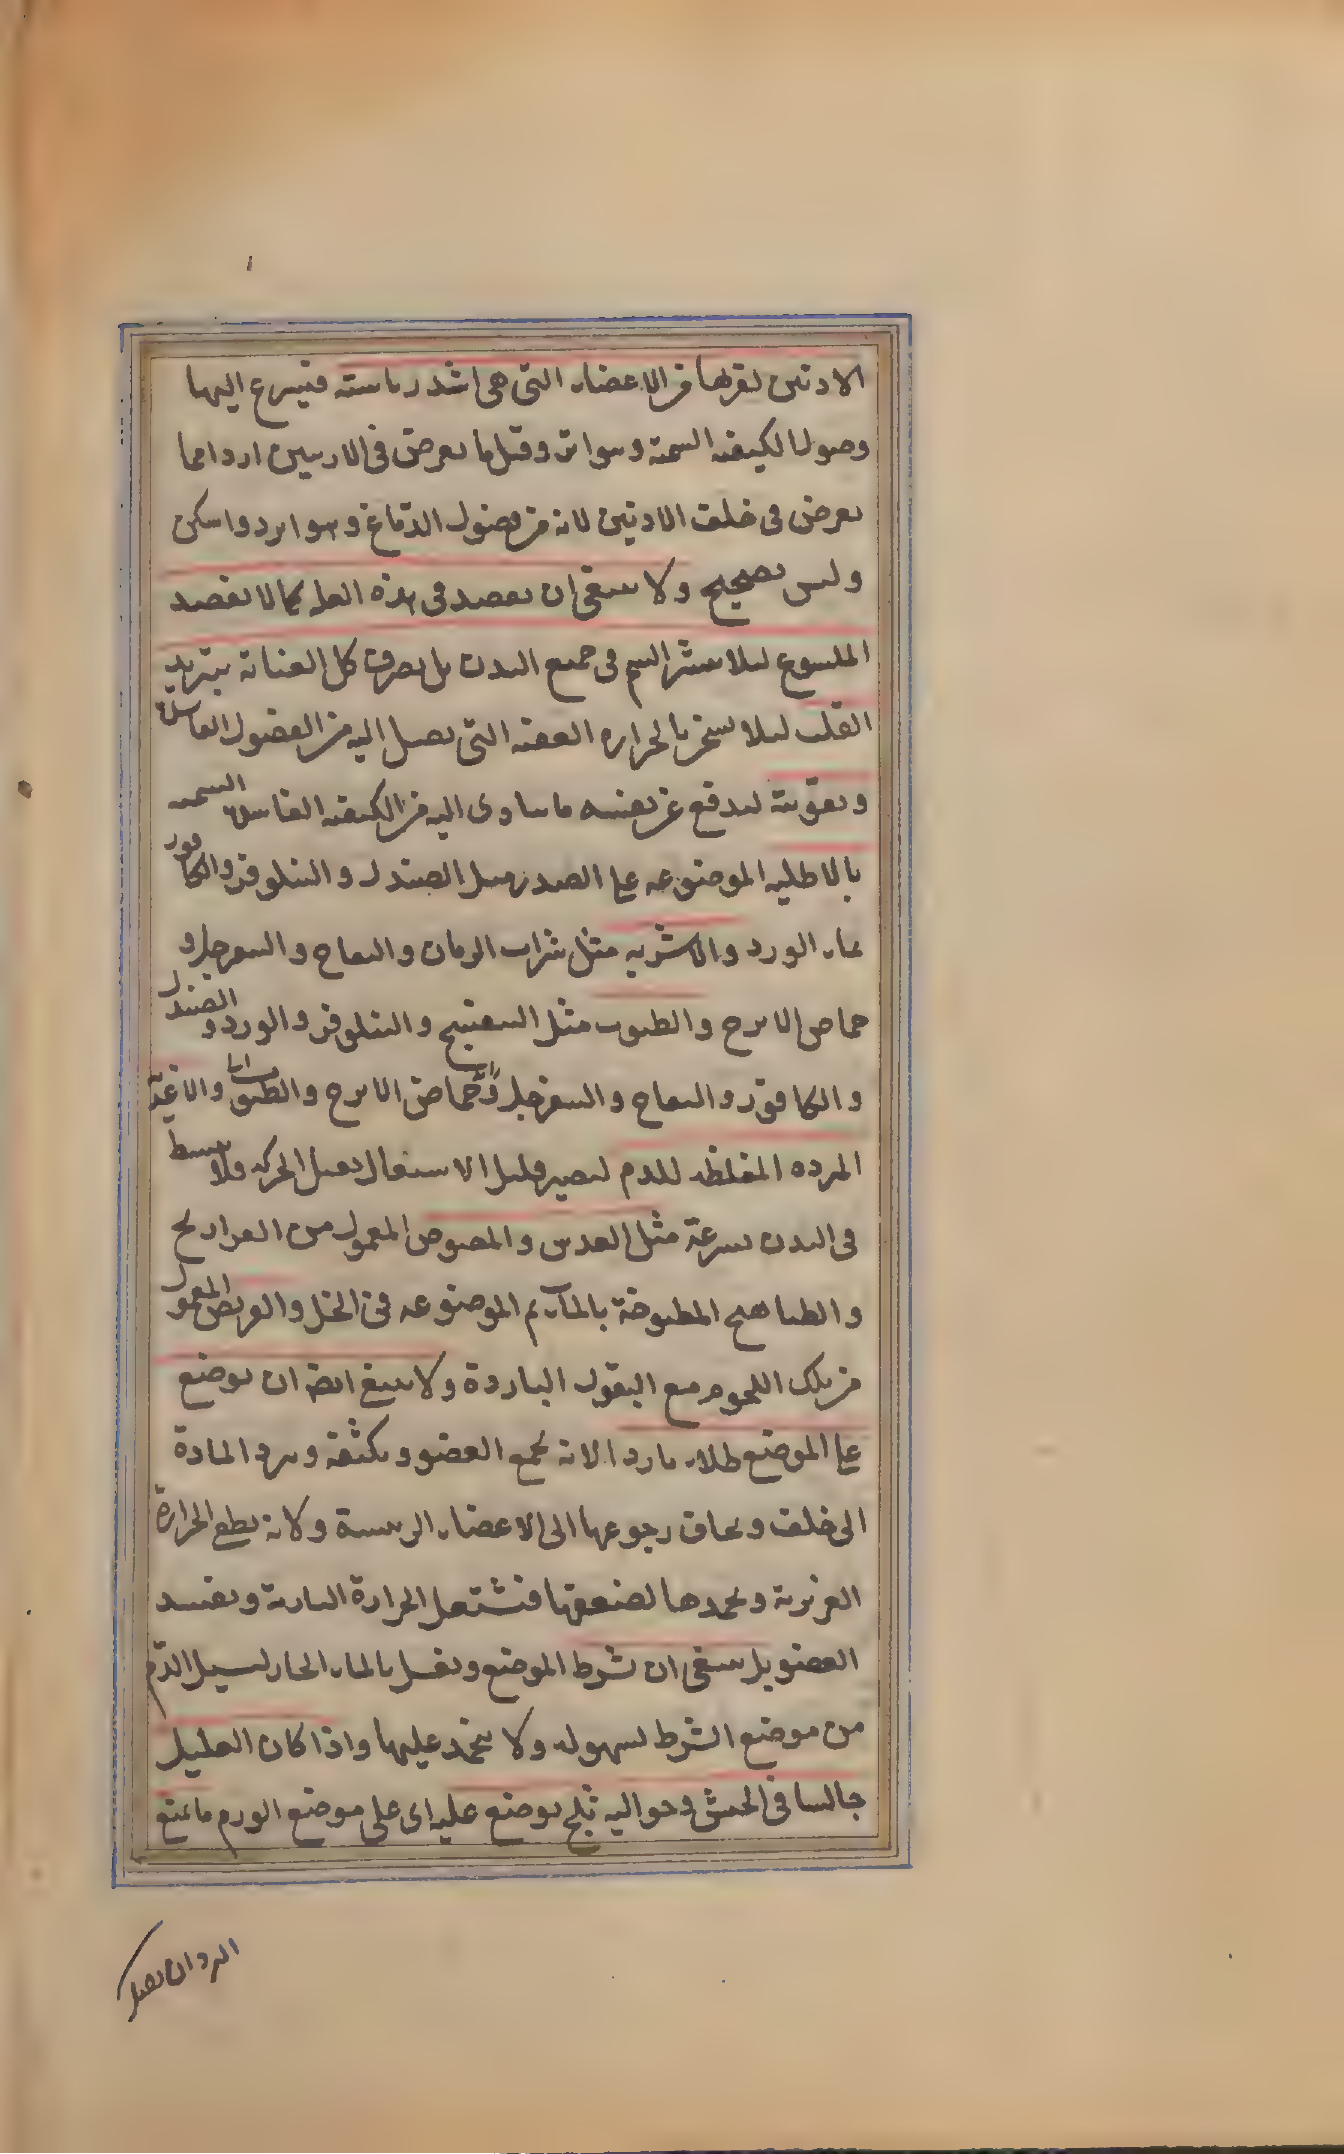 الاذنين لقربها من الاعضاء التى هى اشد رياسته فيسرع اليها
وصول الكيفيه السمية وسواتر وقيل ما يعرض فى الاربيتين اردا مما
يعرض فى خلف الاذنين لانه من فضول الدماغ وهو ابرد واسكن
وليس بصحيح ولا ينبغى ان يفصد فى هذه العله كما لا يفصد
الملسوع ليلا ينتشر السم فى جميع البدن بل يصرف كل العناية بتبريد
القلب ليلا يسخن بالحراره العفنه التى يصل اليه من الفضول الفاسدة
وبتقويته ليدفع عن نفسه ما يتادى اليه من الكيفيه الفاسده السميه
بالاطليه الموضوعه على الصدر مثل الصندل والنيلوفر والكافور
بماء الورد والاشربه مثل شراب الرمان والتفاح والسفرجل و
حماض الاترج والطيوب مثل البنفسج والنيلوفر والورد و الصندل
والكافور والتفاح والسفرجل وحماض الاترج والطيوب ايضا والاغذية
المبرده المغلظه للدم ليصير قليل الاشتعال ثقيل الحركه فلا ينبسط
فى البدن بسرعة مثل العدس والمصوص المعمول من الفراريج
والطياهيج المطبوخة بالماء ثم الموضوعه فى الخل والقريص المعمول
من تلك اللحوم مع البقول الباردة ولا ينبغى ايضا ان يوضع
على الموضع طلاء باردا لانه يجمع العضو ويكثفه ويرد المادة
الى خلف ويخاف رجوعها الى الاعضاء الرييسة ولانه يطفى الحرارة
الغريزية ويخمدها لضعفها فتشتعل الحرارة النارية ويفسد
العضو بل ينبغى ان يشرط الموضع ويغسل بالماء الحار ليسيل الدم
من موضع الشرط بسهوله ولا يجمد عليها واذا كان العليل
جالسا فى الخيش وحواليه ثلج يوضع عليه اى على موضع الورم ما يمنع
البرد ان يصل